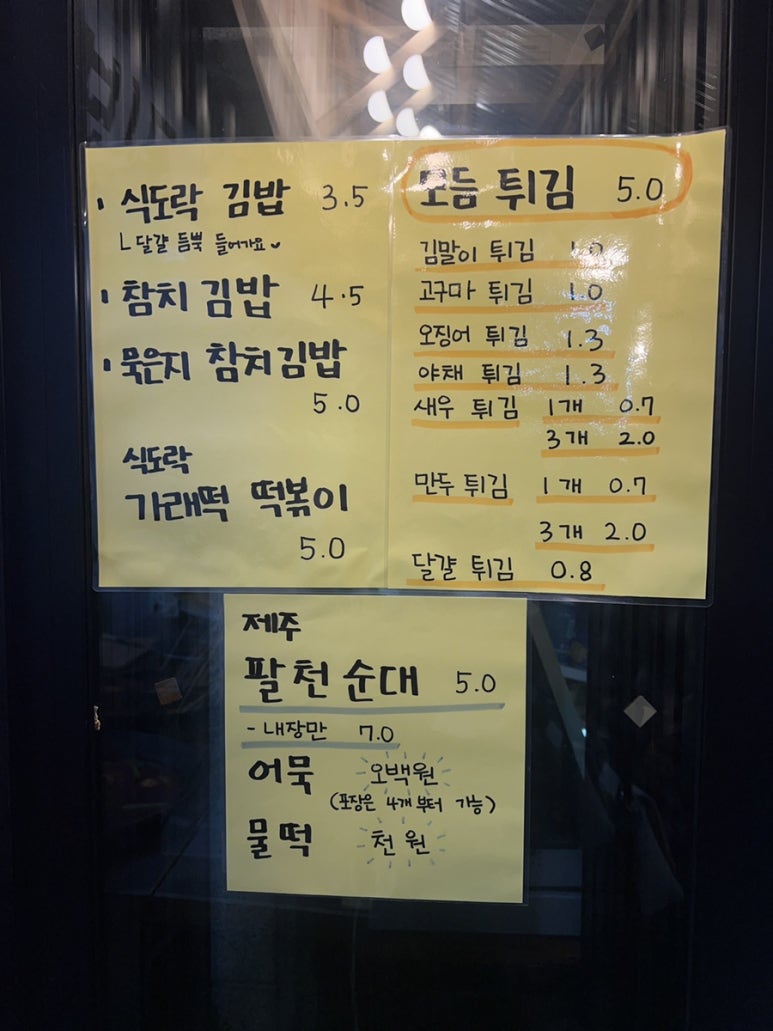 식도락 김밥 3.5
ㄴ달걀 듬뿍 들어가요
참치 김밥 4.5
묵은지 참치김밥
5.0
식도락
가래떡 떡볶이
5.0
모듬 튀김 5.0
김말이 튀김
고구마 튀김 1.0
오징어 튀김 1.3
야채 튀김 1.3
새우 튀김 1개 0.7
3개 2.0
만두 튀김 1개 0.7
3개 2.0
달걀 튀김 0.8
제주
팔천순대 5.0
- 내장만 7.0
어묵 오백원
(포장은 4개부터 가능)
물떡 천원